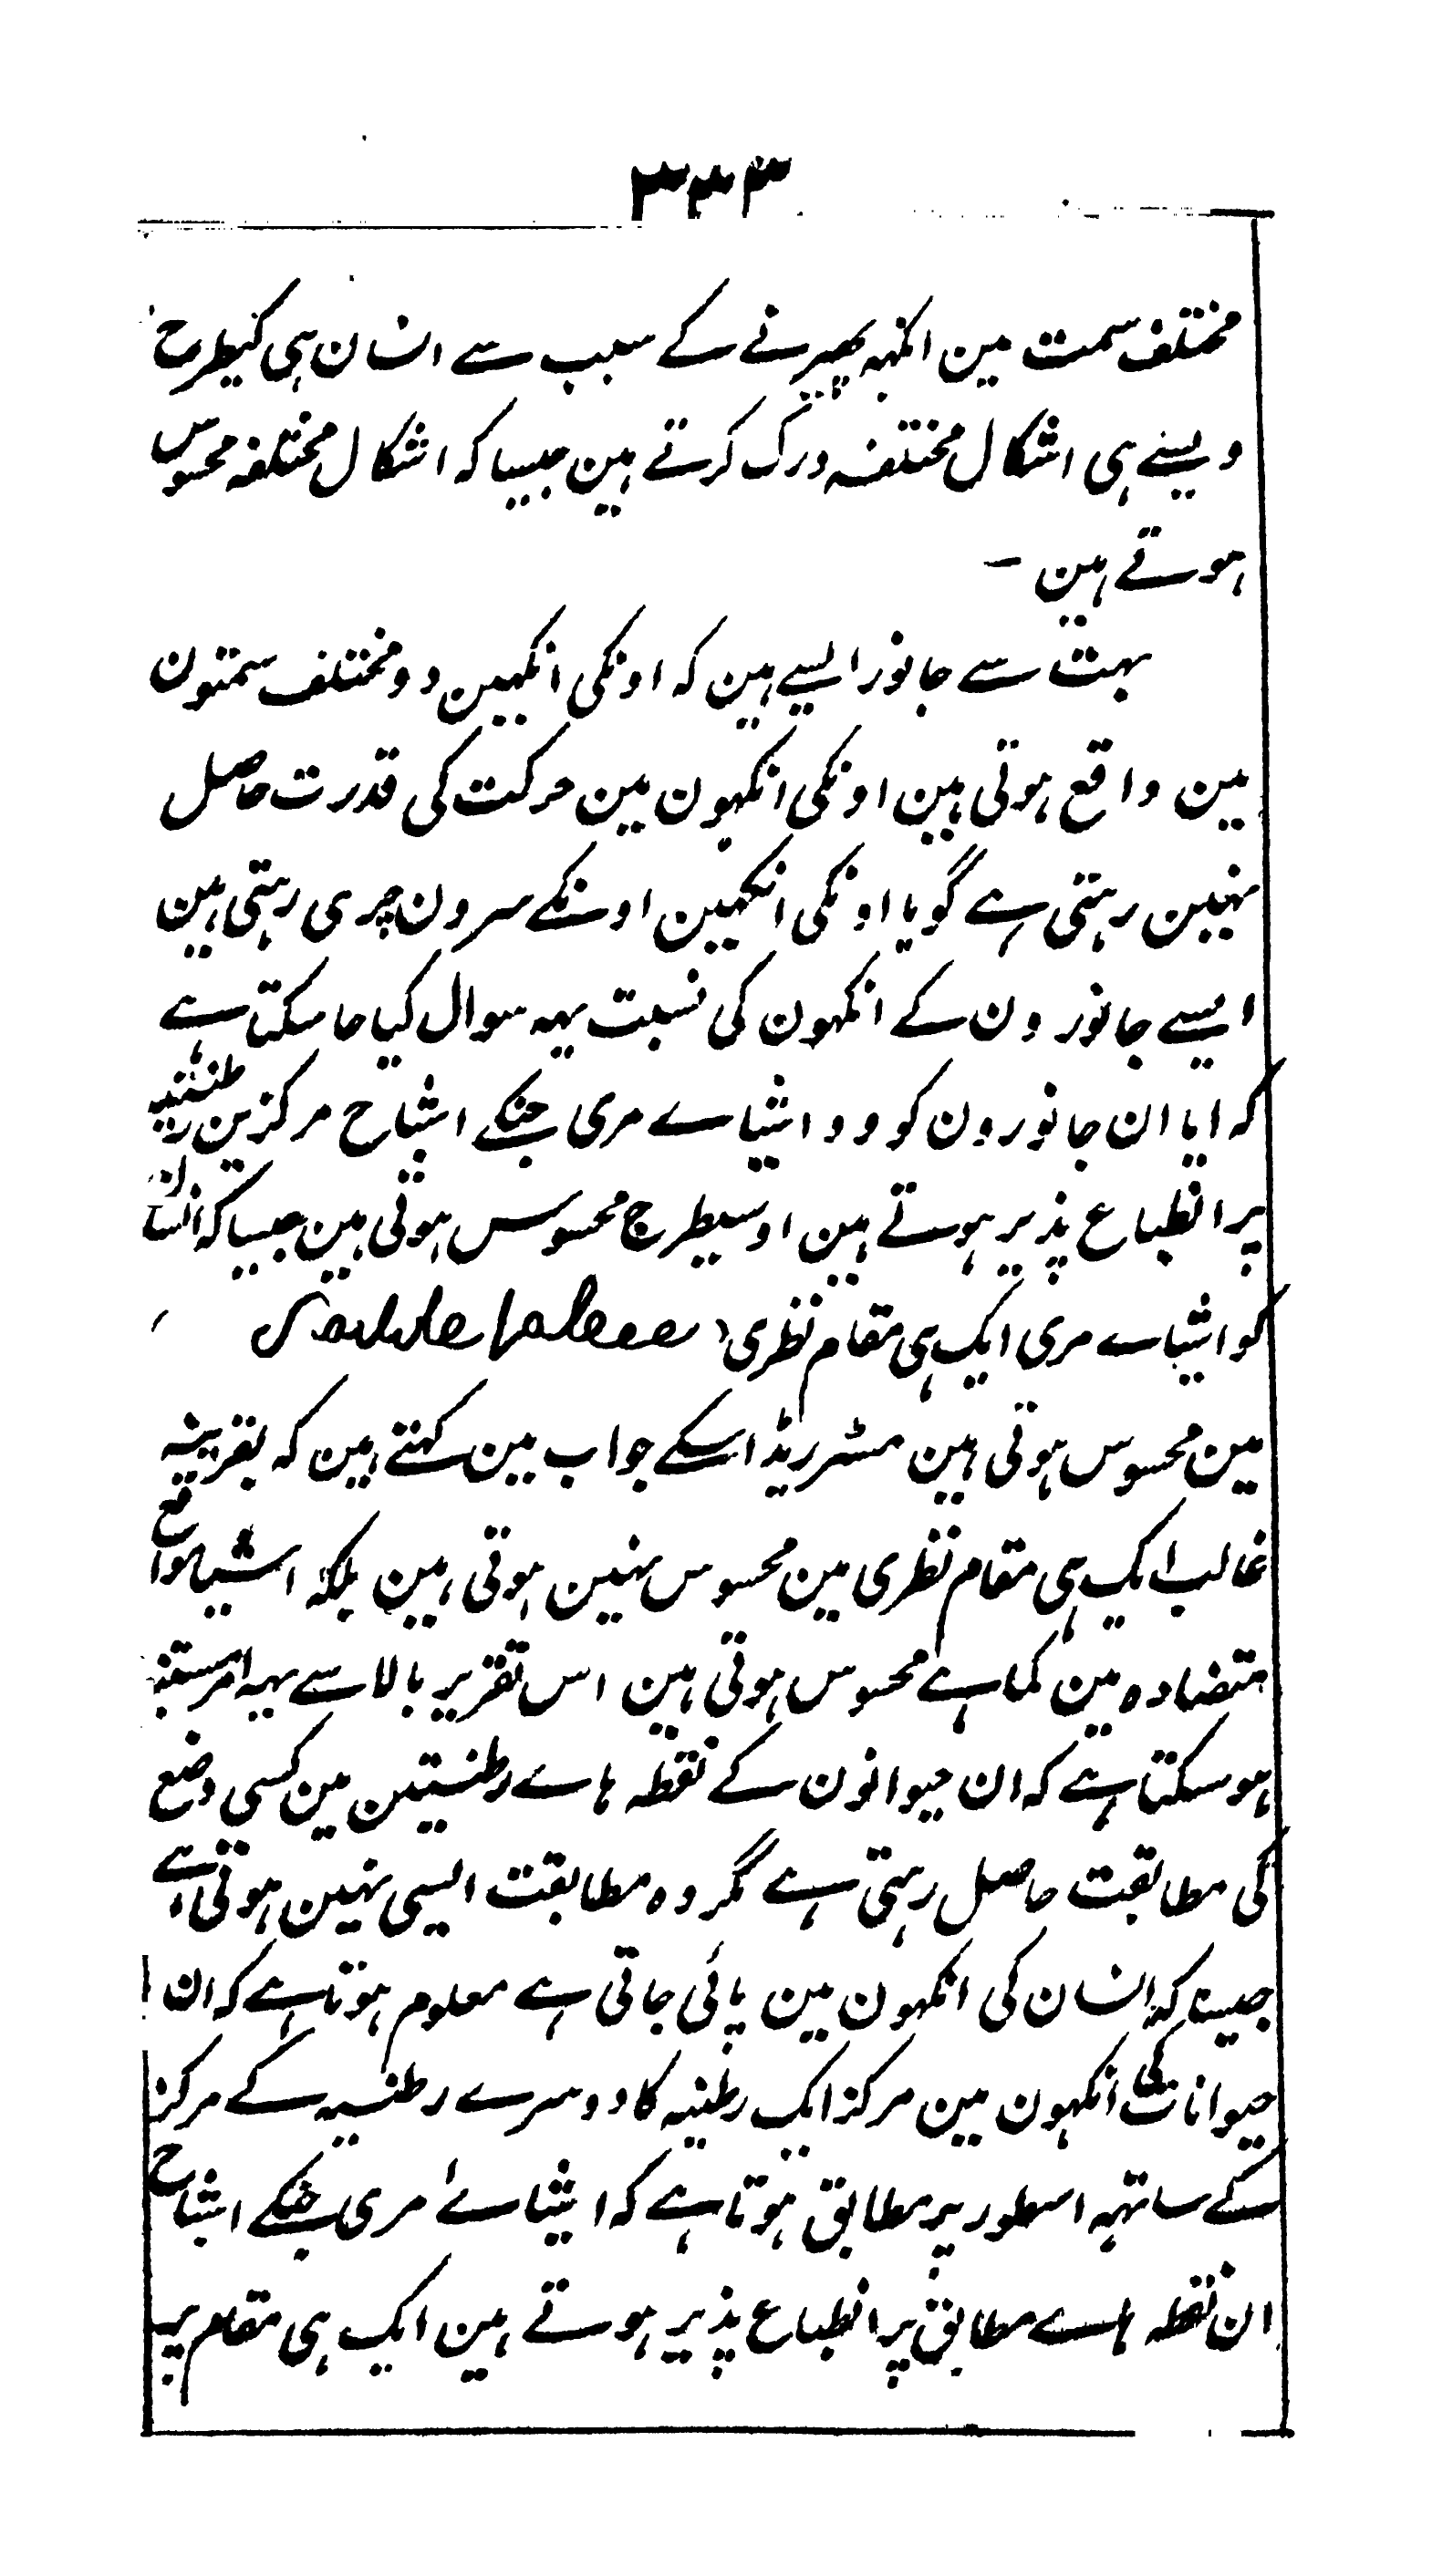 ٣٣٣
مختلف سمت مین انکہہ پھیرنے کے سبب سے انسان ہی کیطرح
ویسے ہی اشکال مختلفہ درک کرتے ہین جیسا کہ اشکال مختلفہ محسوس
ہوتے ہین ـ
بہت سے جانور ایسے ہین کہ اونکی انکہین دو مختلف سمتون
مین واقع ہوتی ہین اونکی انکہون مین حرکت کی قدرت حاصل
نہین رہتی ہے گویا اونکی انکہین اونکے سرون جڑی رہتی ہین
ایسے جانورون کے انکہون کی نسبت یہہ سوال کیا جاسکتا ہے
کہ ایا ان جانورون کو وو اشیاے مری جنکے اشباح مرکزین رطنیہ
پر انطباع پذیر ہوتے ہین اوسیطرح محسوس ہوتی ہین جیسا کہ انسان
کو اشیاے مری ایک ہی مقام نظری
مین محسوس ہوتی ہین مسٹر ریڈ اسکے جواب مین کہتے ہین کہ بقرینہ
غالب ایک ہی مقام نظری مین محسوس نہین ہوتی ہین بلکہ اشیا مواقع
متضادہ مین کماہے محسوس ہوتی ہین اس تقریر بالا سے یہہ امر
ہو سکتا ہے کہ ان حیوانون کے نقطہ ہاے رطنیتین مین کسی وضع
کی مطابقت حاصل رہتی ہے مگر وہ مطابقت ایسی نہین ہوتی ہے
جیسا کہ انسان کی انکہون مین پائی جاتی ہے معلوم ہوتا ہے کہ ان
حیوانات کی انکہون مین مرکز ایک رطنیہ کا دوسرے رطنیہ کے مرکز
کے ساتہہ اسطور پر مطابق ہوتا ہے کہ اشیائے مری جنکے اشباح
ان نقطہ ہاے مطابق پر انطباع پذیر ہوتے ہین ایک ہی مقام پر